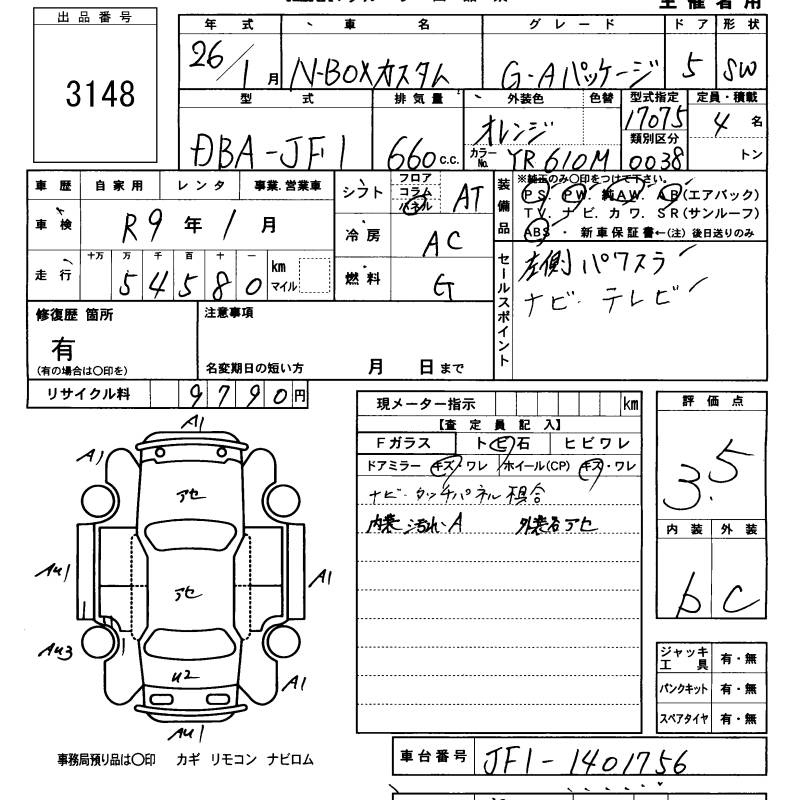 主催者用
出品番号
3148
年式 車名 グレード ドア 形状
26/1月 N-BOXカスタム G・Aパッケージ 5 SW
型式 排気量 外装色 色替 型式指定 定員・積載
DBA-JF1 660c.c. オレンジ 17075 4名
カラーNo. YR610M 類別区分 0038 トン
車歴 自家用 レンタ 事業.営業車
シフト フロア コラム パネル AT
装備品 ※純正のみ〇印をつけて下さい。
PS. PW. 純AW. AB(エアバック)
TV. ナビ. カワ. SR(サンルーフ)
ABS・新車保証書←(注)後日送りのみ
車検 R9年1月
冷房 AC
走行 十万 万 千 百 十 一
54580 km マイル
燃料 G
セールスポイント
左側パワスラ
ナビ・テレビ
修復歴 箇所
有
(有の場合は〇印を)
注意事項
名変期日の短い方 月 日まで
リサイクル料 9790円
現メーター指示 km
【査定員記入】
Fガラス トビ石 ヒビワレ
ドアミラー キズ・ワレ ホイール(CP) キズ・ワレ
ナビ・タッチパネル 不具合
内装 汚れ・A 外装色アセ
評価点
3.5
内装 外装
b C
A1
A1
アセ
AU1
アセ
A1
AU3
U2
A1
AU1
ジャッキ工具 有・無
パンクキット 有・無
スペアタイヤ 有・無
事務局預り品は〇印 カギ リモコン ナビロム
車台番号 JF1-1401756